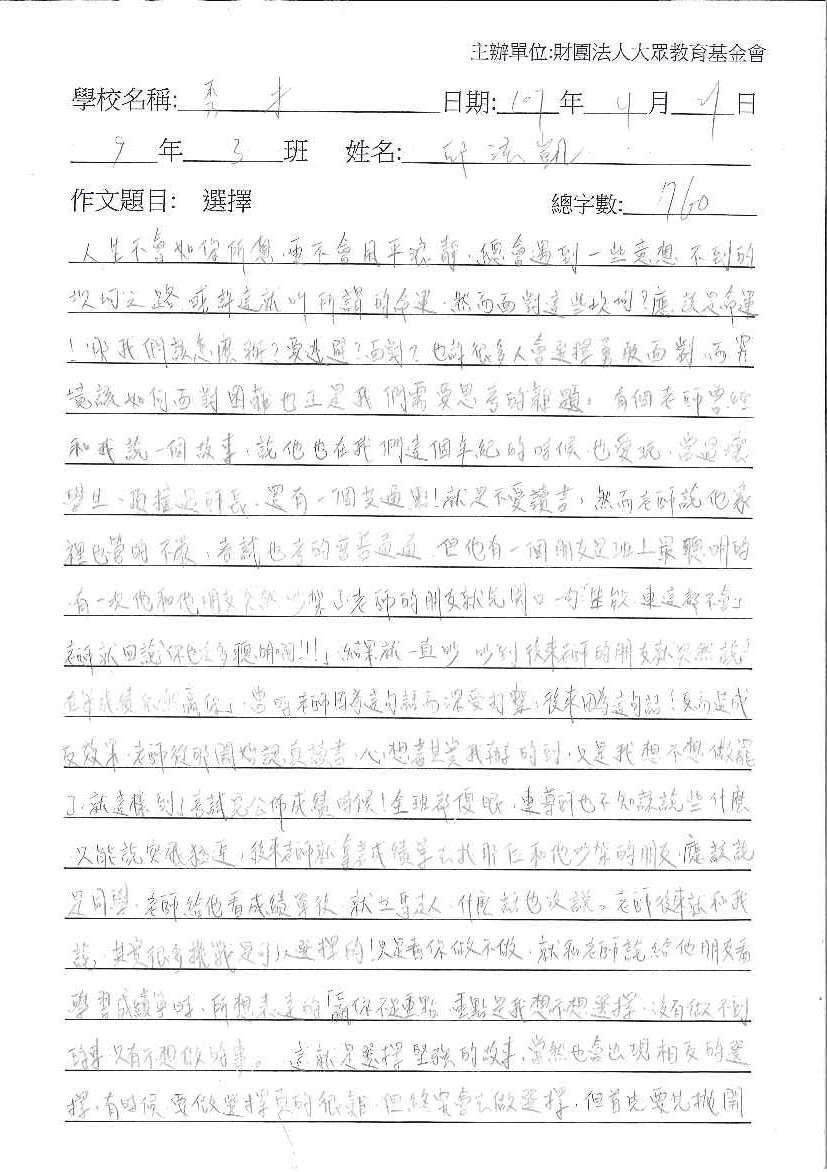 主辦單位:財團法人大眾教育基金會
學校名稱: 秀才 日期: 107 年 4 月 21 日
9 年 3 班 姓名: 邱泓凱
作文題目: 選擇 總字數: 760
人生不會如你所想,更不會風平浪靜,總會遇到一些意想不到的
坎坷之路或許這就叫所謂的命運,然而面對這些坎坷?應該是命運
!呢我們該怎麼辦?要逃避?面對?也許很多人會選擇勇敢面對,而究
竟該如何面對困難也正是我們需要思考的難題。有個老師曾經
和我說一個故事,說他也在我們這個年紀的時候,也愛玩,當過壞
學生、頂撞過師長,還有一個共通點!就是不愛讀書,然而老師說他家
裡也管的不嚴,考試也考的普普通通,但他有一個朋友是班上最聰明的
有一次他和他朋友突然吵架了,老師的朋友就先開口一句「連這都不會」
老師就回說「你也沒多聰明啊!!!」結果就一直吵,吵到後來老師的朋友就突然說「
成績依然贏你」,當時老師因為這句話而深受打擊,後來因為這句話!反而造成
反效果,老師從那開始認真讀書,心想著其實我辦的到,只是我想不想做罷
了,就這樣到了考試完公佈成績時候!全班都傻眼,連導師也不知該說些什麼
只能說突飛猛進,後來老師就拿著成績單去找那位和他吵架的朋友,應該說
是同學,老師給他看成績單後,就立馬走人,什麼話也沒說。老師後來就和我
說,其實很多挑戰是可以選擇的!只是看你做不做,就和老師說給他朋友看
學習成績單時,所想表達的「贏你不是重點,重點是我想不想選擇,沒有做不到
的事只有不想做的事。 這就是選擇堅強的故事,當然也會出現相反的選
擇,有時候,要做選擇真的很難,但終究會去做選擇,但首先要先拋開